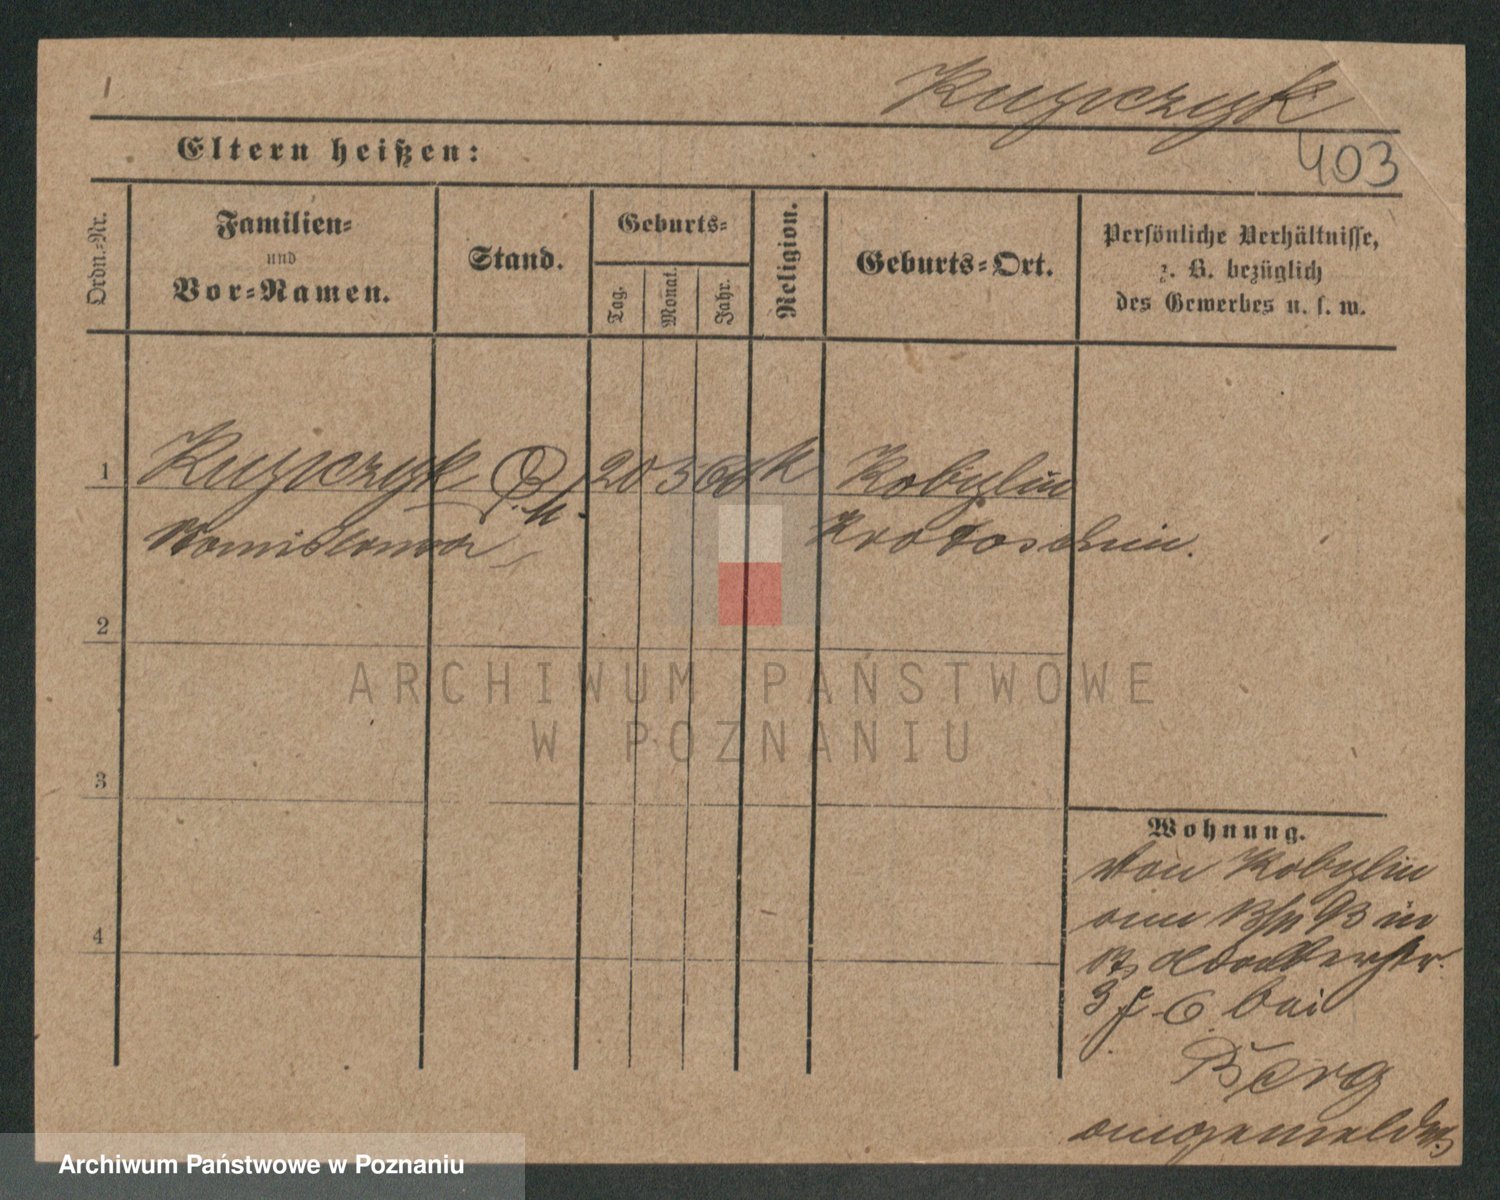 Kuzwczyk
403
Eltern heißen:
Ordn.-Nr.
Familien-
und
Vor-Namen.
Stand.
Geburts-
Tag.
Monat.
Jahr.
Religion.
Geburts-Ort.
Persönliche Verhältnisse,
z. B. bezüglich
des Gewerbes u. s. w.
1 20 5 68 k Kobylin
Stanislawa Krotoschin.
2
3
4
Wohnung.
Von Kobylin
am 93 in
3 6 bei
Berg
angemeldet.
ARCHIWUM PAŃSTWOWE
W POZNANIU
Archiwum Państwowe w Poznaniu